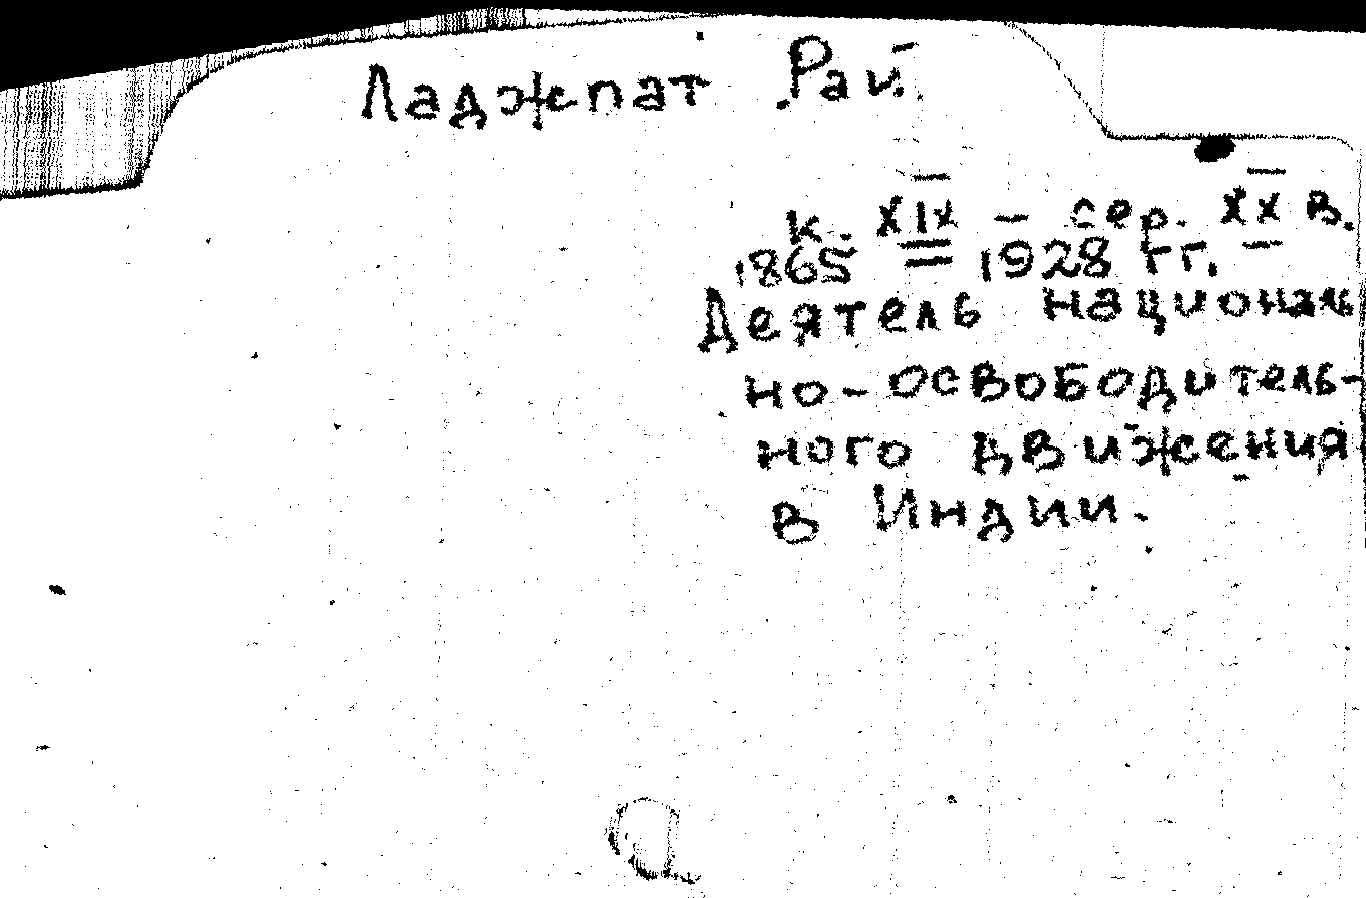 Ладжпат Рай.
к. XIX – сер. XX в.
1865 = 1928 гг.
Деятель националь
но-освободитель-
ного движения
в Индии.